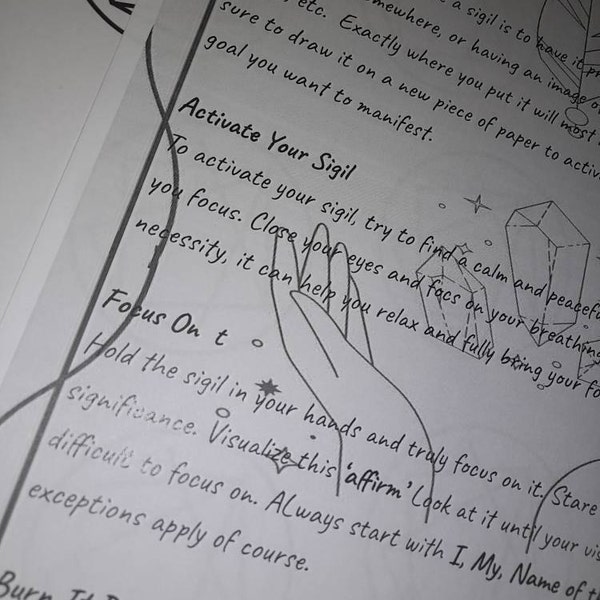 a sigil is to have it
etc. Exactly where you put it will most
sure to draw it on a new piece of paper to activ
goal you want to manifest.
Activate Your Sigil
To activate your sigil, try to find a calm and peacefu
you focus. Close your eyes and facs on your breathing
necessity, it can help you relax and fully bring your fo
Focus On t
Hold the sigil in your hands and truly focus on it. Stare
significance. Visualize this 'affirm' Look at it until your vis
difficult to focus on. ALways start with I, My, Name of th
exceptions apply of course.
Burn It